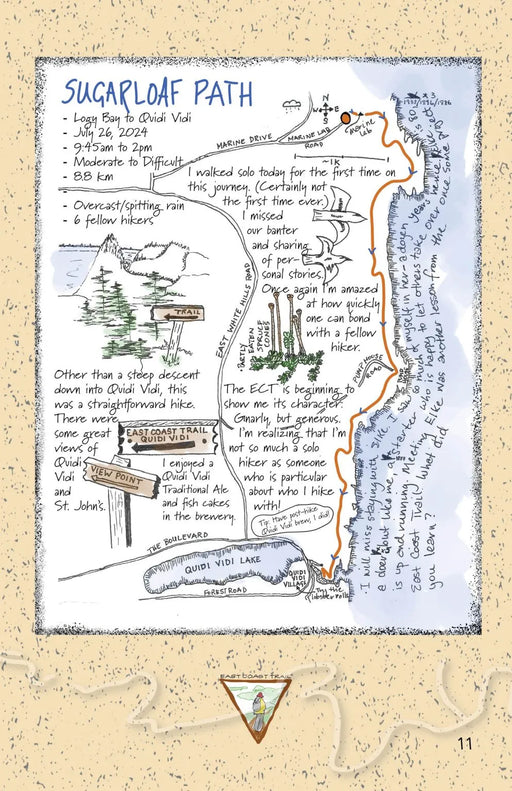 SUGARLOAF PATH
- Logy Bay to Quidi Vidi
- July 26, 2024
- 9:45am to 2pm
- Moderate to Difficult
- 8.8 km
- Overcast/spitting rain
- 6 fellow hikers
N
W E
S
MARINE DRIVE
MARINE LAB
ROAD
Marine
Lab
~1K
I walked solo today for the first time on
this journey. (Certainly not
the first time ever.)
I missed
our banter
and sharing
of per-
sonal stories.
Once again I'm amazed
at how quickly
one can bond
with a fellow
hiker.
TRAIL
EAST WHITE HILLS ROAD
PARTLY
EATEN
SPRUCE
CONES
PUMP HOUSE
ROAD
Other than a steep descent
down into Quidi Vidi, this
was a straightforward hike.
There were
some great
views of
Quidi
Vidi
and
St. John's.
EAST COAST TRAIL
QUIDI VIDI
VIEW POINT
I enjoyed a
Quidi Vidi
Traditional Ale
and fish cakes
in the brewery.
The ECT is beginning to
show me its character.
Gnarly, but generous.
I'm realizing that I'm
not so much a solo
hiker as someone
who is particular
about who I hike
with!
Tip: Have post-hike
Quidi Vidi brew, I did!
THE BOULEVARD
QUIDI VIDI LAKE
QUIDI
VIDI
VILLAGE
FOREST ROAD
Try the
lobster roll!
I will miss staying with Elke.
I saw so much of myself in her - a down
a doer, but like me, a starter who is happy to let others take over once some
is up and running. Meeting Elke was another lesson from the
East Coast Trail. What did
you learn?
EAST COAST TRAIL
11